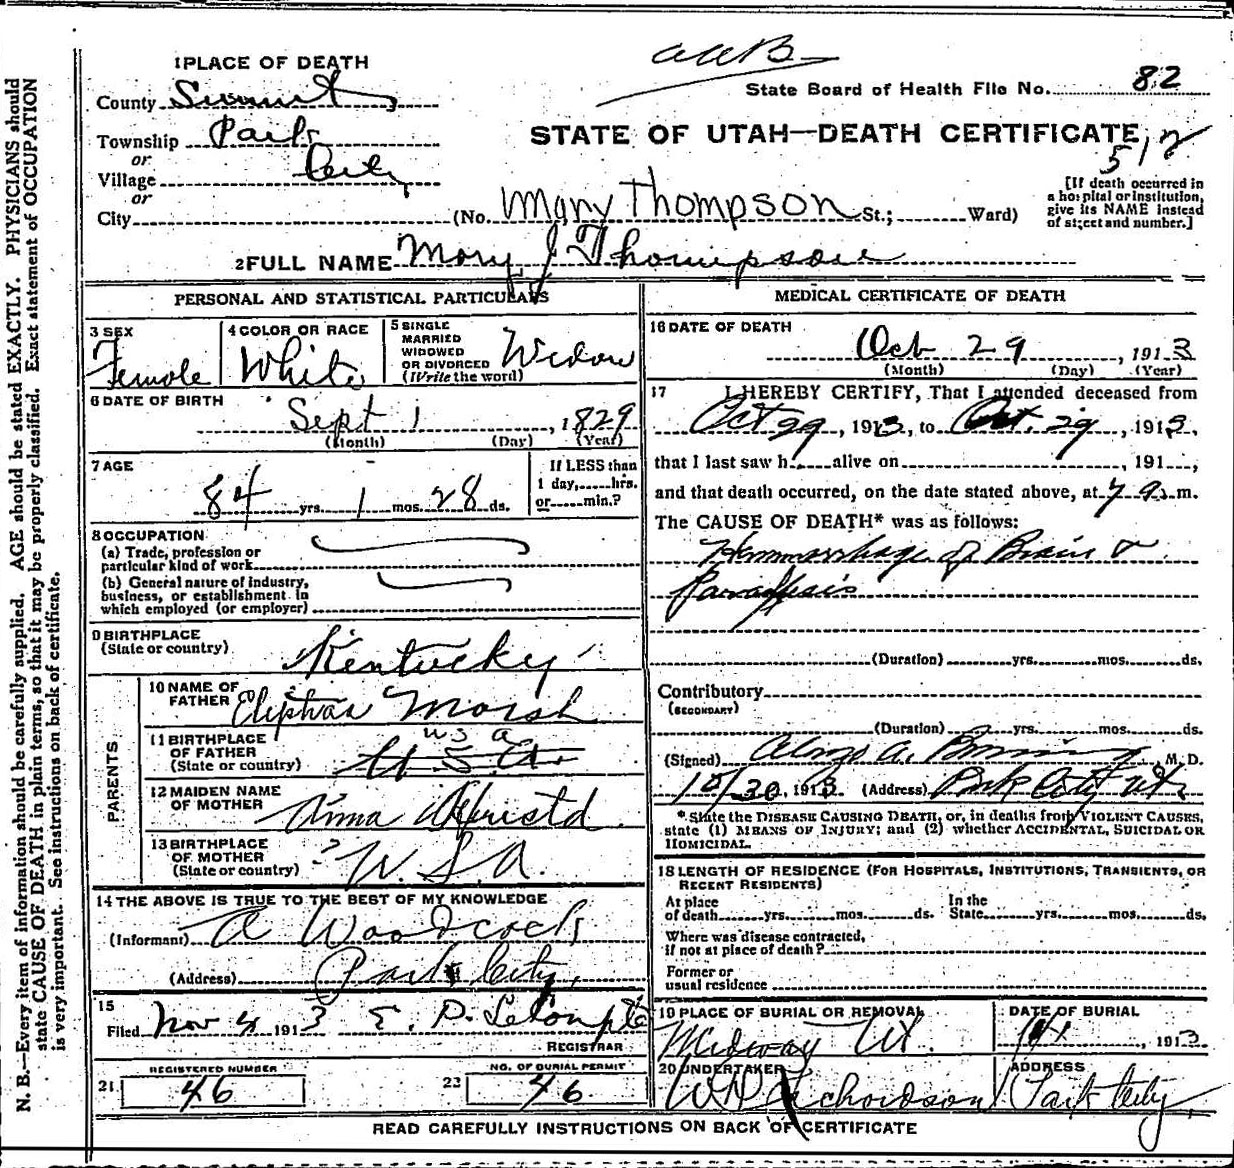 1 PLACE OF DEATH
County Summit
State Board of Health File No. 82
STATE OF UTAH—DEATH CERTIFICATE
Township Park
or
Village City
or
City (No. Mary Thompson St.; Ward)
[If death occurred in
a hospital or institution,
give its NAME instead
of street and number.]
2 FULL NAME Mary J Thompson
PERSONAL AND STATISTICAL PARTICULARS
3 SEX
Female
4 COLOR OR RACE
White
5 SINGLE
MARRIED
WIDOWED
OR DIVORCED
(Write the word)
Widow
6 DATE OF BIRTH
Sept 1, 1829
(Month) (Day) (Year)
7 AGE
84 yrs. 1 mos. 28 ds.
If LESS than
1 day, hrs.
or min.?
8 OCCUPATION
(a) Trade, profession or
particular kind of work
(b) General nature of industry,
business, or establishment in
which employed (or employer)
9 BIRTHPLACE
(State or country)
Kentucky
PARENTS
10 NAME OF
FATHER
Marsh
11 BIRTHPLACE
OF FATHER
(State or country)
U S A
U. S. A.
12 MAIDEN NAME
OF MOTHER
Anna
13 BIRTHPLACE
OF MOTHER
(State or country)
? U. S. A.
14 THE ABOVE IS TRUE TO THE BEST OF MY KNOWLEDGE
(Informant) A Woodcock
(Address) Park City,
15
Filed Nov 4 1913 E. P. LeCompte
REGISTRAR
21 REGISTERED NUMBER
46
22 NO. OF BURIAL PERMIT
46
MEDICAL CERTIFICATE OF DEATH
16 DATE OF DEATH
Oct 29, 1913
(Month) (Day) (Year)
17 I HEREBY CERTIFY, That I attended deceased from
Oct 29, 1913, to Oct. 29, 1913,
that I last saw h alive on , 191 ,
and that death occurred, on the date stated above, at 7 a. m.
The CAUSE OF DEATH* was as follows:
Hemmorrhage of Brain &
Paralysis
(Duration) yrs. mos. ds.
Contributory
(SECONDARY)
(Duration) yrs. mos. ds.
(Signed) M. D.
10/30, 1913 (Address) Park City Ut
* State the DISEASE CAUSING DEATH, or, in deaths from VIOLENT CAUSES,
state (1) MEANS OF INJURY; and (2) whether ACCIDENTAL, SUICIDAL OR
HOMICIDAL.
18 LENGTH OF RESIDENCE (FOR HOSPITALS, INSTITUTIONS, TRANSIENTS, OR
RECENT RESIDENTS)
At place
of death yrs. mos. ds.
In the
State yrs. mos. ds.
Where was disease contracted,
if not at place of death?
Former or
usual residence
19 PLACE OF BURIAL OR REMOVAL
Midway Ut.
DATE OF BURIAL
, 1913
20 UNDERTAKER
W D Richardson
ADDRESS
Park City,
READ CAREFULLY INSTRUCTIONS ON BACK OF CERTIFICATE
N. B.—Every item of information should be carefully supplied. AGE should be stated EXACTLY. PHYSICIANS should
state CAUSE OF DEATH in plain terms, so that it may be properly classified. Exact statement of OCCUPATION
is very important. See instructions on back of certificate.